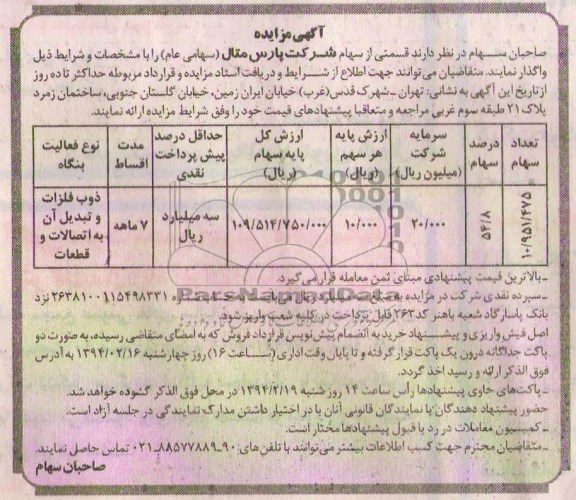 آگهی مزایده
صاحبان سهام در نظر دارند قسمتی از سهام شرکت پارس متال (سهامی عام) را با مشخصات و شرایط ذیل
واگذار نمایند. متقاضیان می‌توانند جهت اطلاع از شرایط و دریافت اسناد مزایده و قرارداد مربوطه حداکثر تا ده روز
از تاریخ این آگهی به نشانی: تهران - شهرک قدس (غرب) خیابان ایران زمین، خیابان گلستان جنوبی، ساختمان زمرد
پلاک ۲۱ طبقه سوم غربی مراجعه و متعاقبا پیشنهادهای قیمت خود را وفق شرایط مزایده ارائه نمایند.
تعداد سهام
درصد سهام
سرمایه شرکت (میلیون ریال)
ارزش پایه هر سهم (ریال)
ارزش کل پایه سهام (ریال)
حداقل درصد پیش پرداخت نقدی
مدت اقساط
نوع فعالیت بنگاه
۱۰/۹۵۱/۴۷۵
۵۴/۸
۲۰/۰۰۰
۱۰/۰۰۰
۱۰۹/۵۱۴/۷۵۰/۰۰۰
سه میلیارد ریال
۷ ماهه
ذوب فلزات و تبدیل آن به اتصالات و قطعات
- بالاترین قیمت پیشنهادی مبنای ثمن معامله قرار می‌گیرد.
- سپرده نقدی شرکت در مزایده به مبلغ ۲۶۳۸۱۰۰۱۱۵۴۹۸۳۳۱ نزد
بانک پاسارگاد شعبه باهنر کد ۲۶۳ قابل پرداخت در کلیه شعب واریز شود.
اصل فیش واریزی و پیشنهاد خرید به انضمام پیش‌نویس قرارداد فروش که به امضای متقاضی رسیده، به صورت دو
پاکت جداگانه درون یک پاکت قرار گرفته و تا پایان وقت اداری (ساعت ۱۶) روز چهارشنبه ۱۳۹۴/۰۲/۱۶ به آدرس
فوق الذکر ارائه و رسید اخذ گردد.
- پاکت‌های حاوی پیشنهادها رأس ساعت ۱۴ روز شنبه ۱۳۹۴/۲/۱۹ در محل فوق الذکر گشوده خواهد شد.
حضور پیشنهاد دهندگان یا نمایندگان قانونی آنان با در اختیار داشتن مدارک نمایندگی در جلسه آزاد است.
- کمیسیون معاملات در رد یا قبول پیشنهادها مختار است.
- متقاضیان محترم جهت کسب اطلاعات بیشتر می‌توانند با تلفن‌های: ۹۰-۸۸۵۷۷۸۸۹-۰۲۱ تماس حاصل نمایند.
صاحبان سهام
ParsNamadData